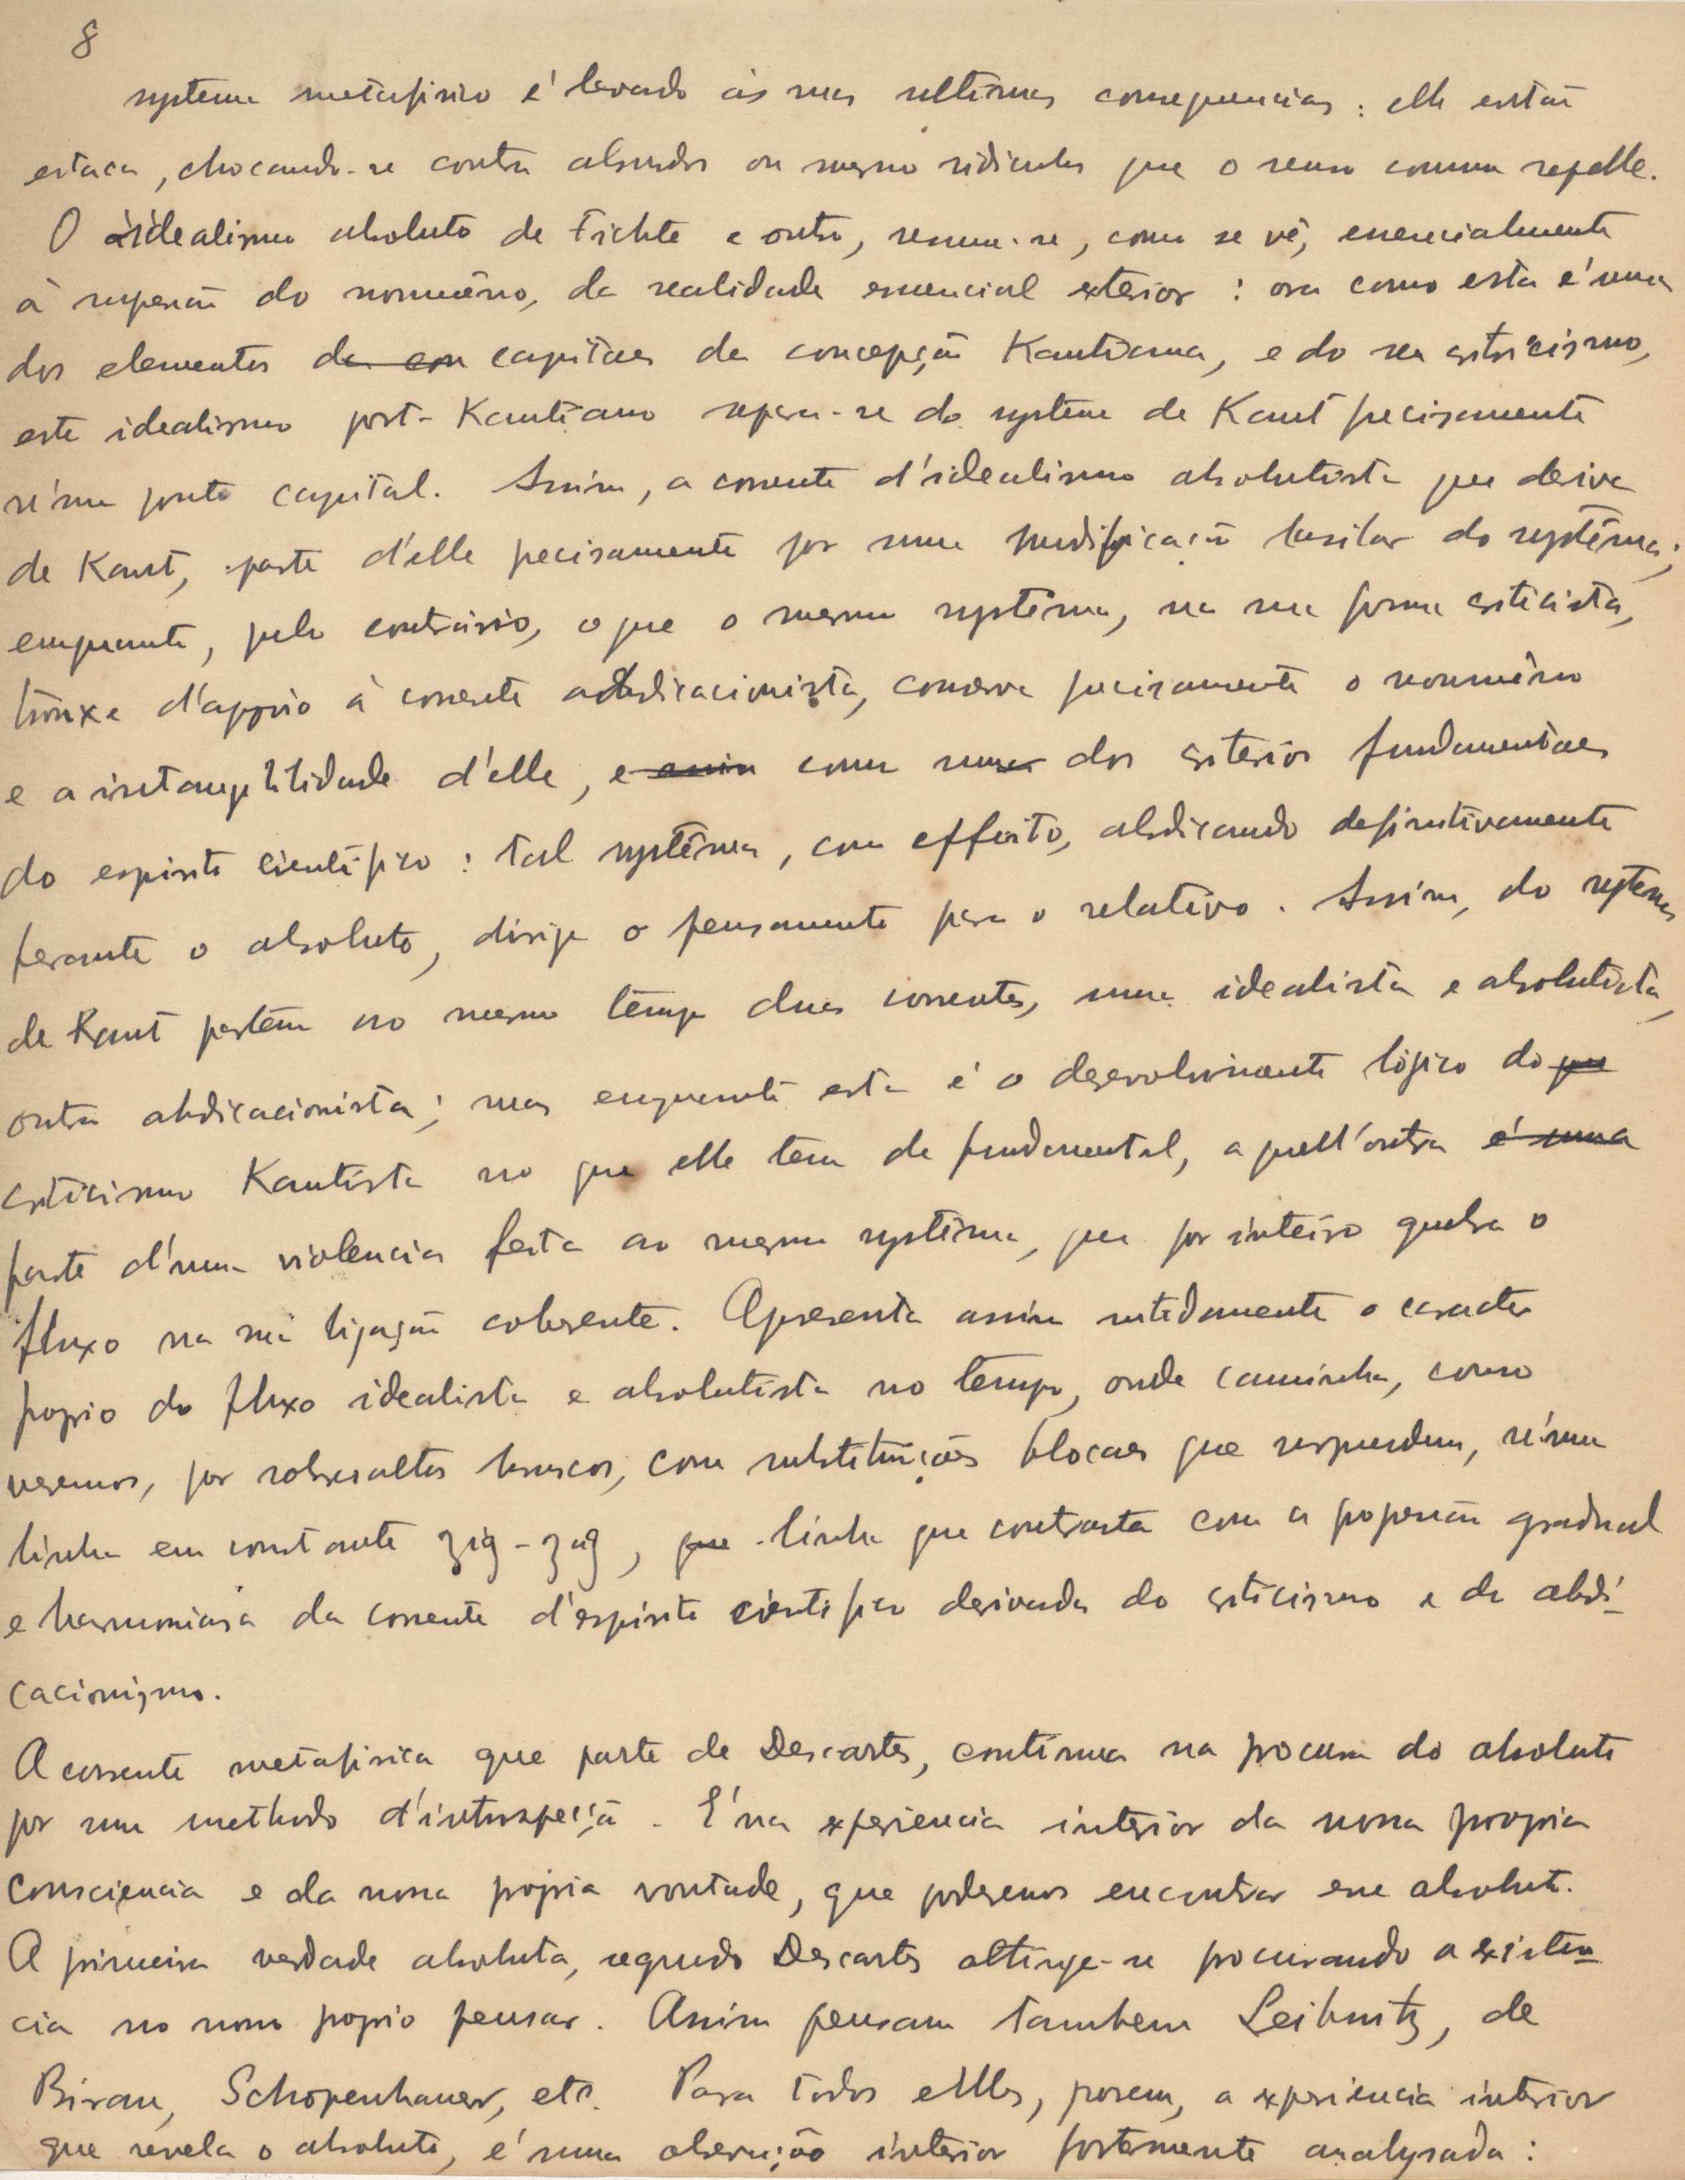 8
systema metafisico é levado ás suas ultimas consequencias : elle então
estaca, chocando-se contra absurdos ou mesmo ridiculos que o senso commum repelle.
O idealismo absoluto de Fichte e outros, resume-se, como se vê, essencialmente
á supressão do noumêno, da realidade essencial exterior : ora como esta é uma
dos elementos da con capitaes da concepção Kantiana, e do seu criticismo,
este idealismo post-Kantiano separa-se do systema de Kant precisamente
n'um ponto capital. Assim, a corrente d'idealismo absolutista que deriva
de Kant, parte d'elle precisamente por uma modificação basilar do systêma;
emquanto, pelo contrário, o que o mesmo systêma, na sua forma criticista,
trouxe d'appoio á corrente abdicacionista, conserva precisamente o noumêno
e a inintangibilidade d'elle, e assim como uma dos criterios fundamentaes
do espirito cientifico : tal systêma, com effeito, abdicando definitivamente
perante o absoluto, dirige o pensamento para o relativo. Assim, do systema
de Kant partem ao mesmo tempo duas correntes, uma idealista e absolutista,
outra abdicacionista; mas emquanto esta é o desenvolvimento lógico do que
criticismo Kantista no que elle tem de fundamental, aquell'outra é uma
parte d'uma violencia feita ao mesmo systêma, que por inteiro quebra o
fluxo na sua ligação coherente. Apresenta assim nitidamente o caracter
proprio do fluxo idealista e absolutista no tempo, onde caminha, como
veremos, por sobresaltos bruscos, com substituições blocaes que surpreendem, n'uma
linha em constante zig-zag, que linha que contrasta com a progressão gradual
e harmoniosa da corrente d'espirito cientifico derivada do criticismo e do abdi-
cacionismo.
A corrente metafisica que parte de Descartes, continua na procura do absoluto
por um methodo d'introspecção. É na experiencia interior da nossa propria
consciencia e da nossa própria vontade, que poderemos encontrar esse absoluto.
A primeira verdade absoluta, segundo Descartes attinge-se procurando a existen-
cia no nosso proprio pensar. Assim pensam tambem Leibnitz, de
Biran, Schopenhauer, etc. Para todos elles, porem, a experiencia interior
que revela o absoluto, é uma observação interior fortemente analysada :